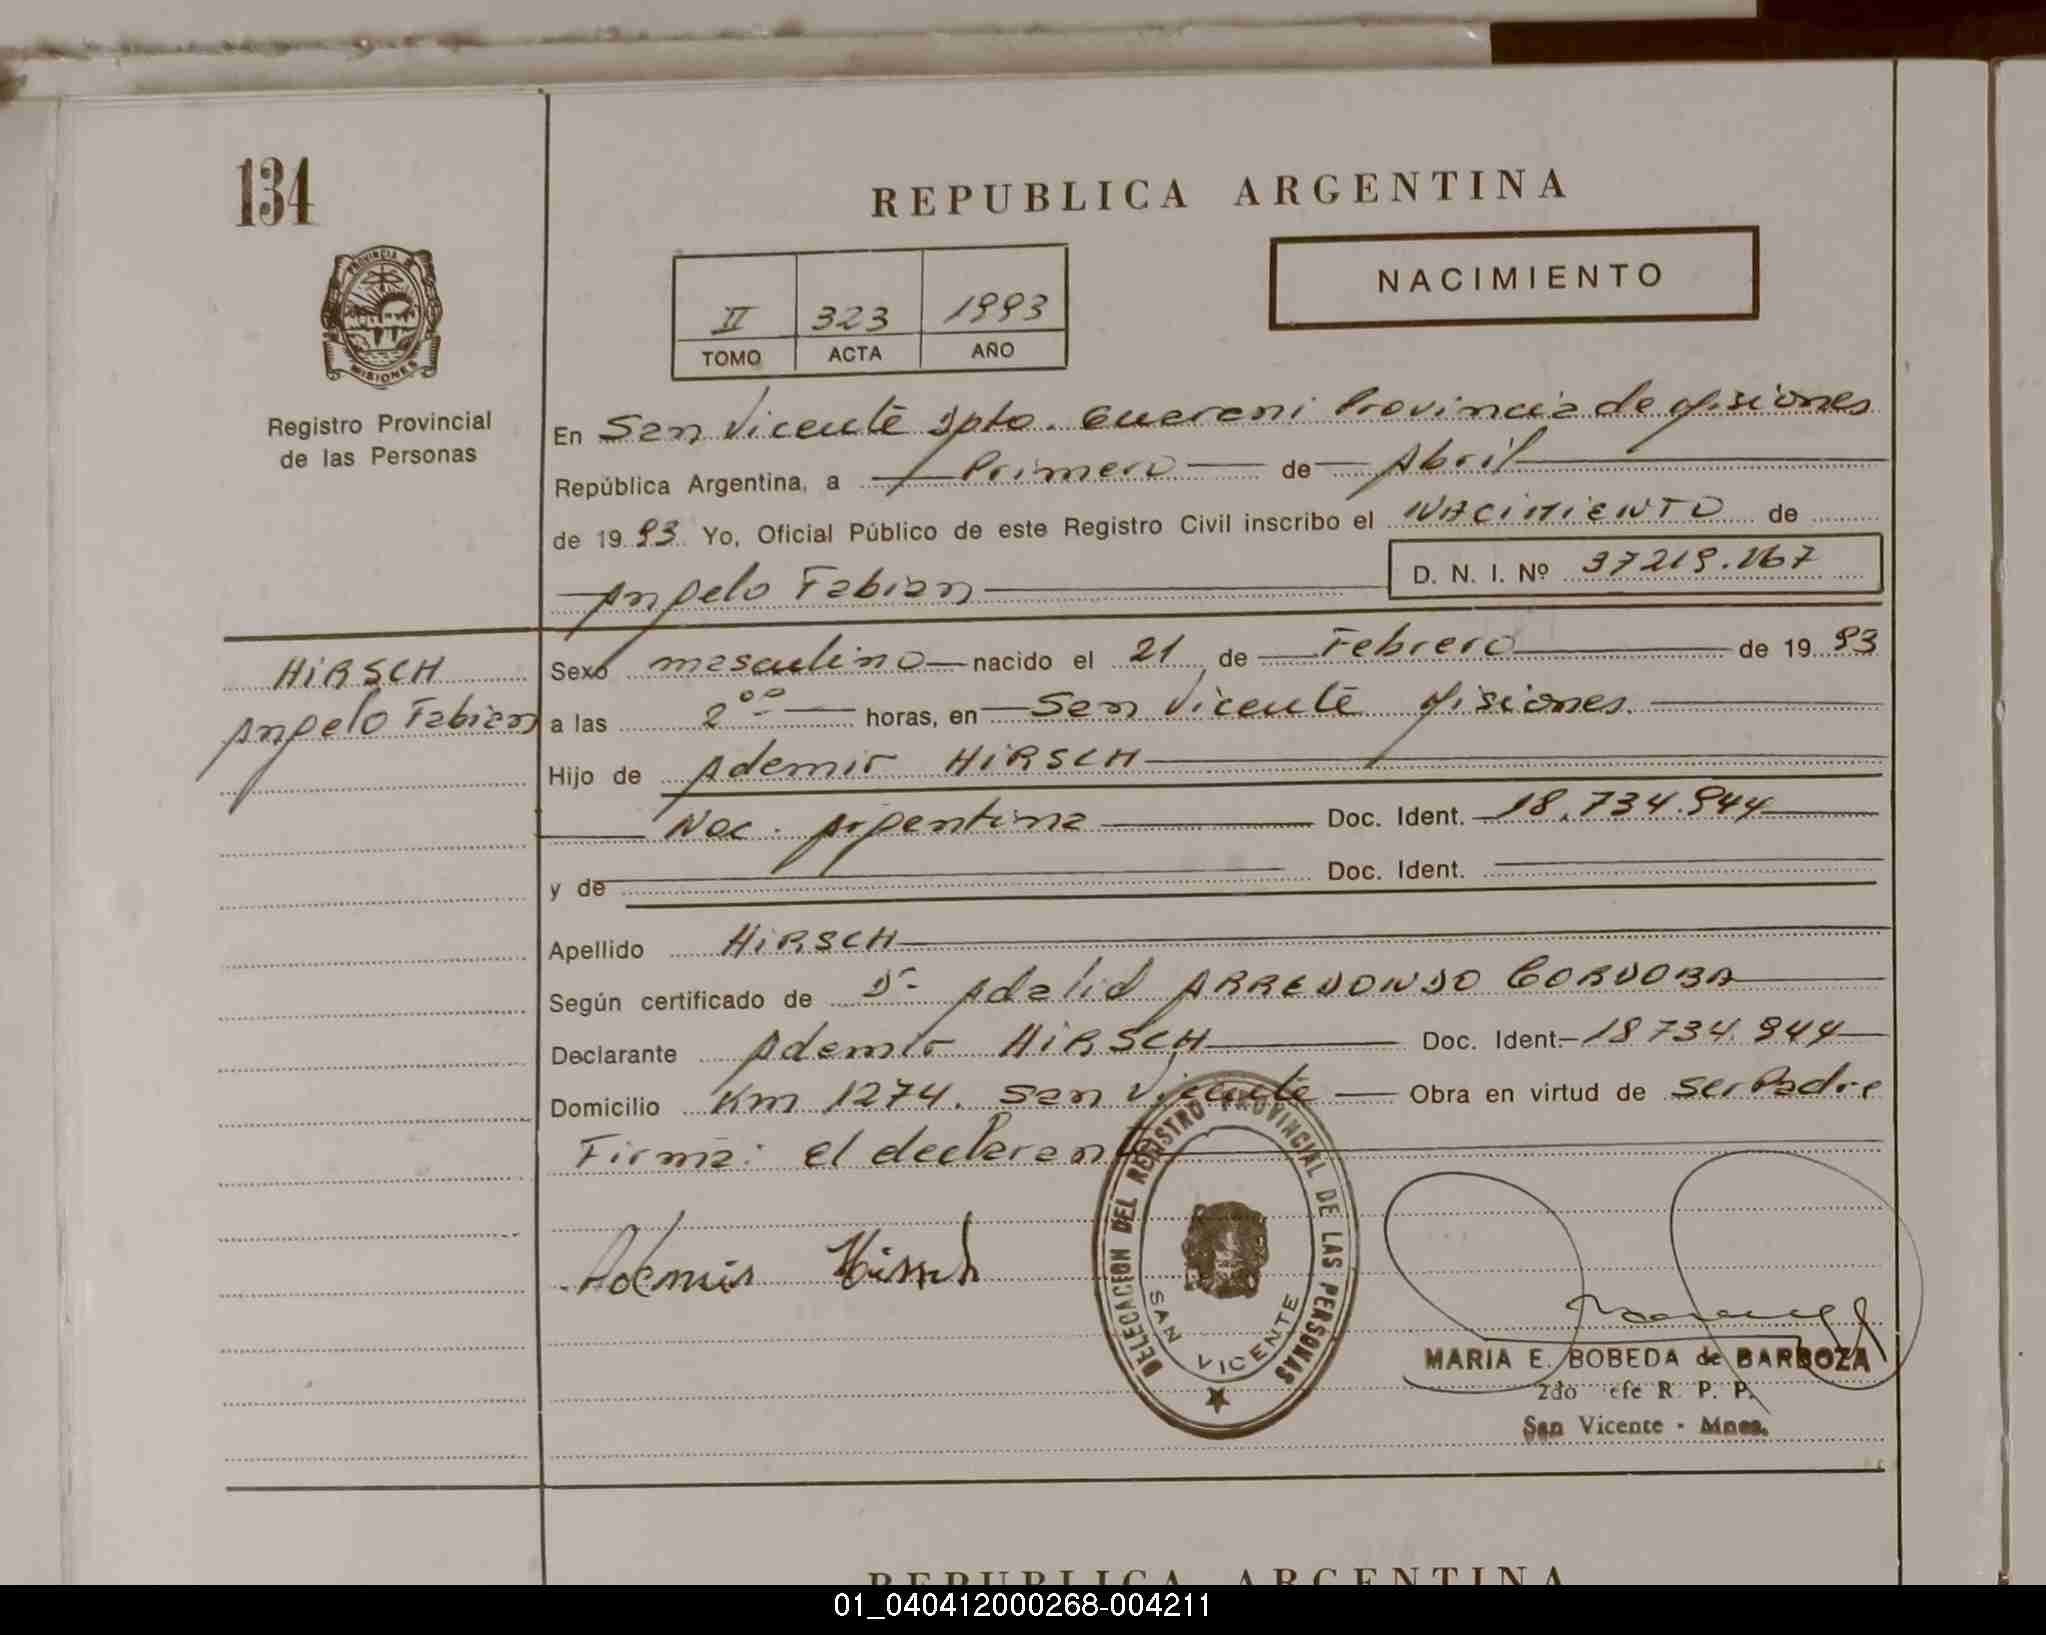 134
REPUBLICA ARGENTINA
PROVINCIA DE
MISIONES
Registro Provincial
de las Personas
II 323 1993
TOMO ACTA AÑO
NACIMIENTO
En San Vicente Dpto. Guarani Provincia de Misiones
República Argentina, a Primero de Abril
de 1993 Yo, Oficial Público de este Registro Civil inscribo el NACIMIENTO de
Angelo Fabian D. N. I. Nº 37219.167
HIRSCH
Angelo Fabian
Sexo masculino nacido el 21 de Febrero de 1993
a las 2 00 horas, en San Vicente Misiones.
Hijo de Ademir HIRSCH
Nac. Argentina Doc. Ident. 18.734.944
y de Doc. Ident.
Apellido HIRSCH
Según certificado de Dr. Adalid ARREDONDO CORDOBA
Declarante Ademir HIRSCH Doc. Ident. 18734.944
Domicilio Km 1274. San Vicente Obra en virtud de ser Padre
Firma: el declarante
Ademir Hirsch
DELEGACION DEL REGISTRO PROVINCIAL DE LAS PERSONAS
SAN VICENTE
MARIA E. BOBEDA de BARBOZA
2do efe R. P. P.
San Vicente - Mnes.
REPUBLICA ARGENTINA
01_040412000268-004211